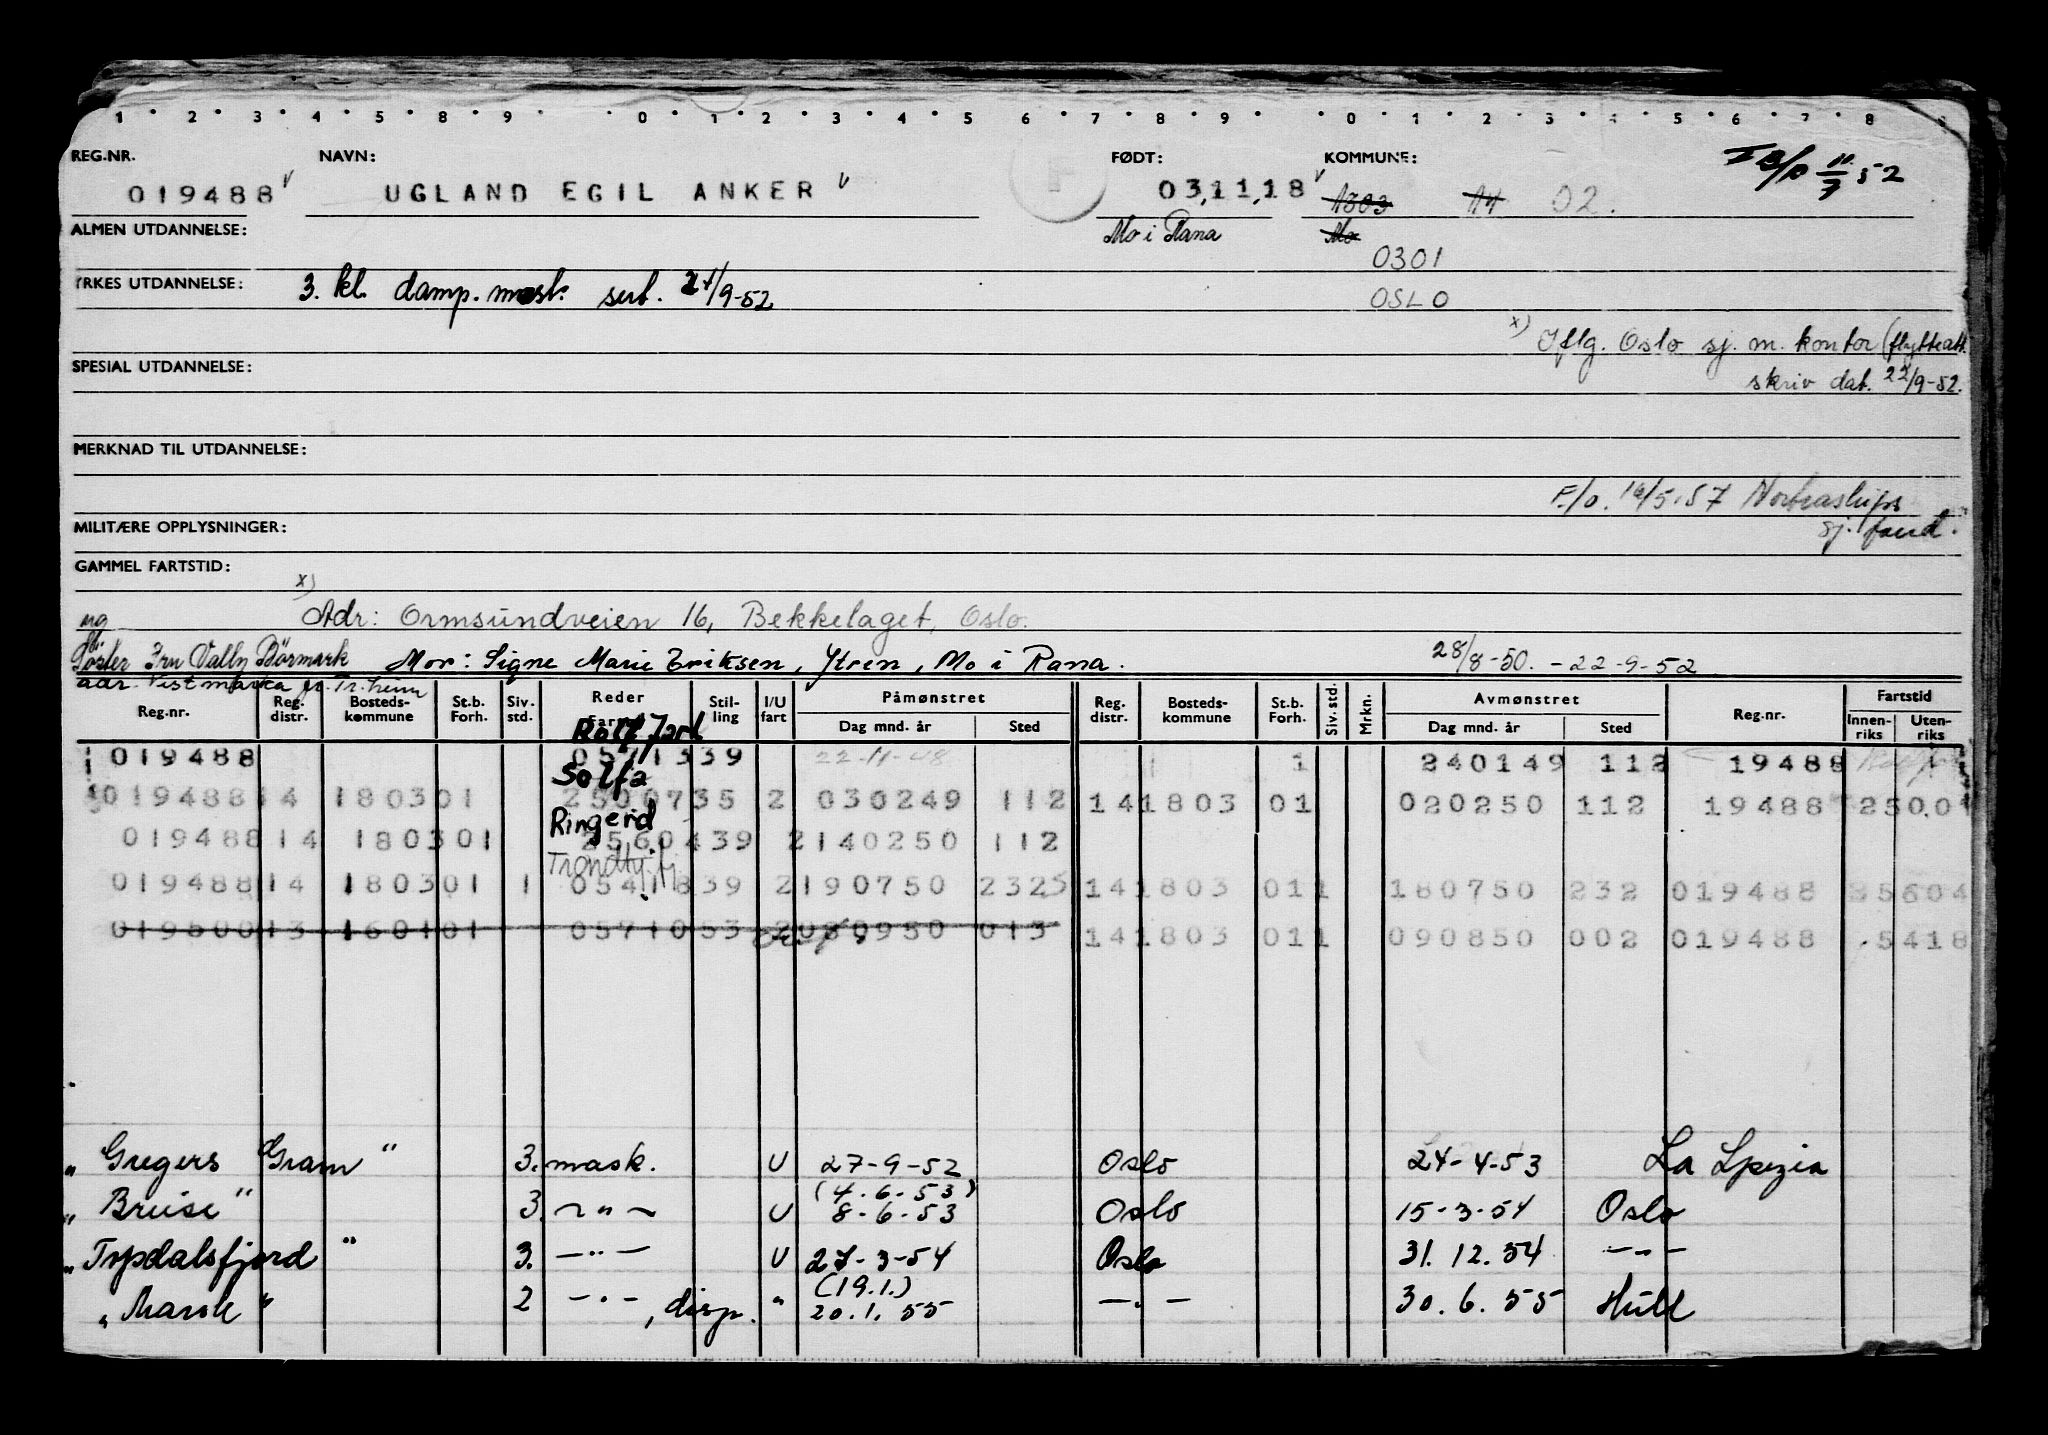 1 2 3 4 5 8 9 0 1 2 3 4 5 6 7 8 9 0 1 2 3 4 5 6 7 8
REG.NR. NAVN: FØDT: KOMMUNE:
019488 UGLAND EGIL ANKER 03,11,18 1803 14 02.
Mo i Rana Mo
ALMEN UTDANNELSE:
0301
YRKES UTDANNELSE: 3. kl. damp. mask. sert. 24/9-52 OSLO
x) Iflg. Oslo sj. m. kontor (flytteatt.
SPESIAL UTDANNELSE: skriv dat. 22/9-52.
MERKNAD TIL UTDANNELSE:
F/o. 14/5.57 Nortraships
MILITÆRE OPPLYSNINGER: sj. fond.
GAMMEL FARTSTID:
x) Adr: Ormsundveien 16, Bekkelaget, Oslo.
Søster Fru Vally Börmark Mor: Signe Marie Eriksen, Ytren, Mo i Rana. 28/8-50. - 22-9-52
adr. Vestmarka pr. Tr.heim
Reg.nr. Reg. distr. Bosteds-kommune St.b. Forh. Siv. std. Reder Stil-ling I/U fart Påmønstret Dag mnd. år Sted Reg. distr. Bosteds-kommune St.b. Forh. Siv. std. Mrkn. Avmønstret Dag mnd. år Sted Reg.nr. Fartstid Innen-riks Uten-riks
Rolf Jarl
019488 0571339 22-11-48 1 240149 112 19488
Solfa
019488 14 1803 01 2500735 2 030249 112 14 1803 01 020250 112 19488
Ringerid
019488 14 1803 01 2560439 2 140250 112
Trondhj.fj.
019488 14 1803 01 1 0541839 2 190750 232 14 1803 01 1 180750 232 019488
019500 13 1601 01 0571053 2 080950 013 14 1803 01 1 090850 002 019488 5418
" Gregers Gram " 3. mask. U 27-9-52 Oslo 24-4-53 La Spezia
(4.6.53)
" Breise " 3. ~ " ~ U 8-6-53 Oslo 15-3-54 Oslo
" Tysdalsfjord " 3. — " — U 27-3-54 Oslo 31.12.54 — " —
(19.1.)
" Marok " 2 — " —, disp. " 20.1.55 — " — 30.6.55 Hull